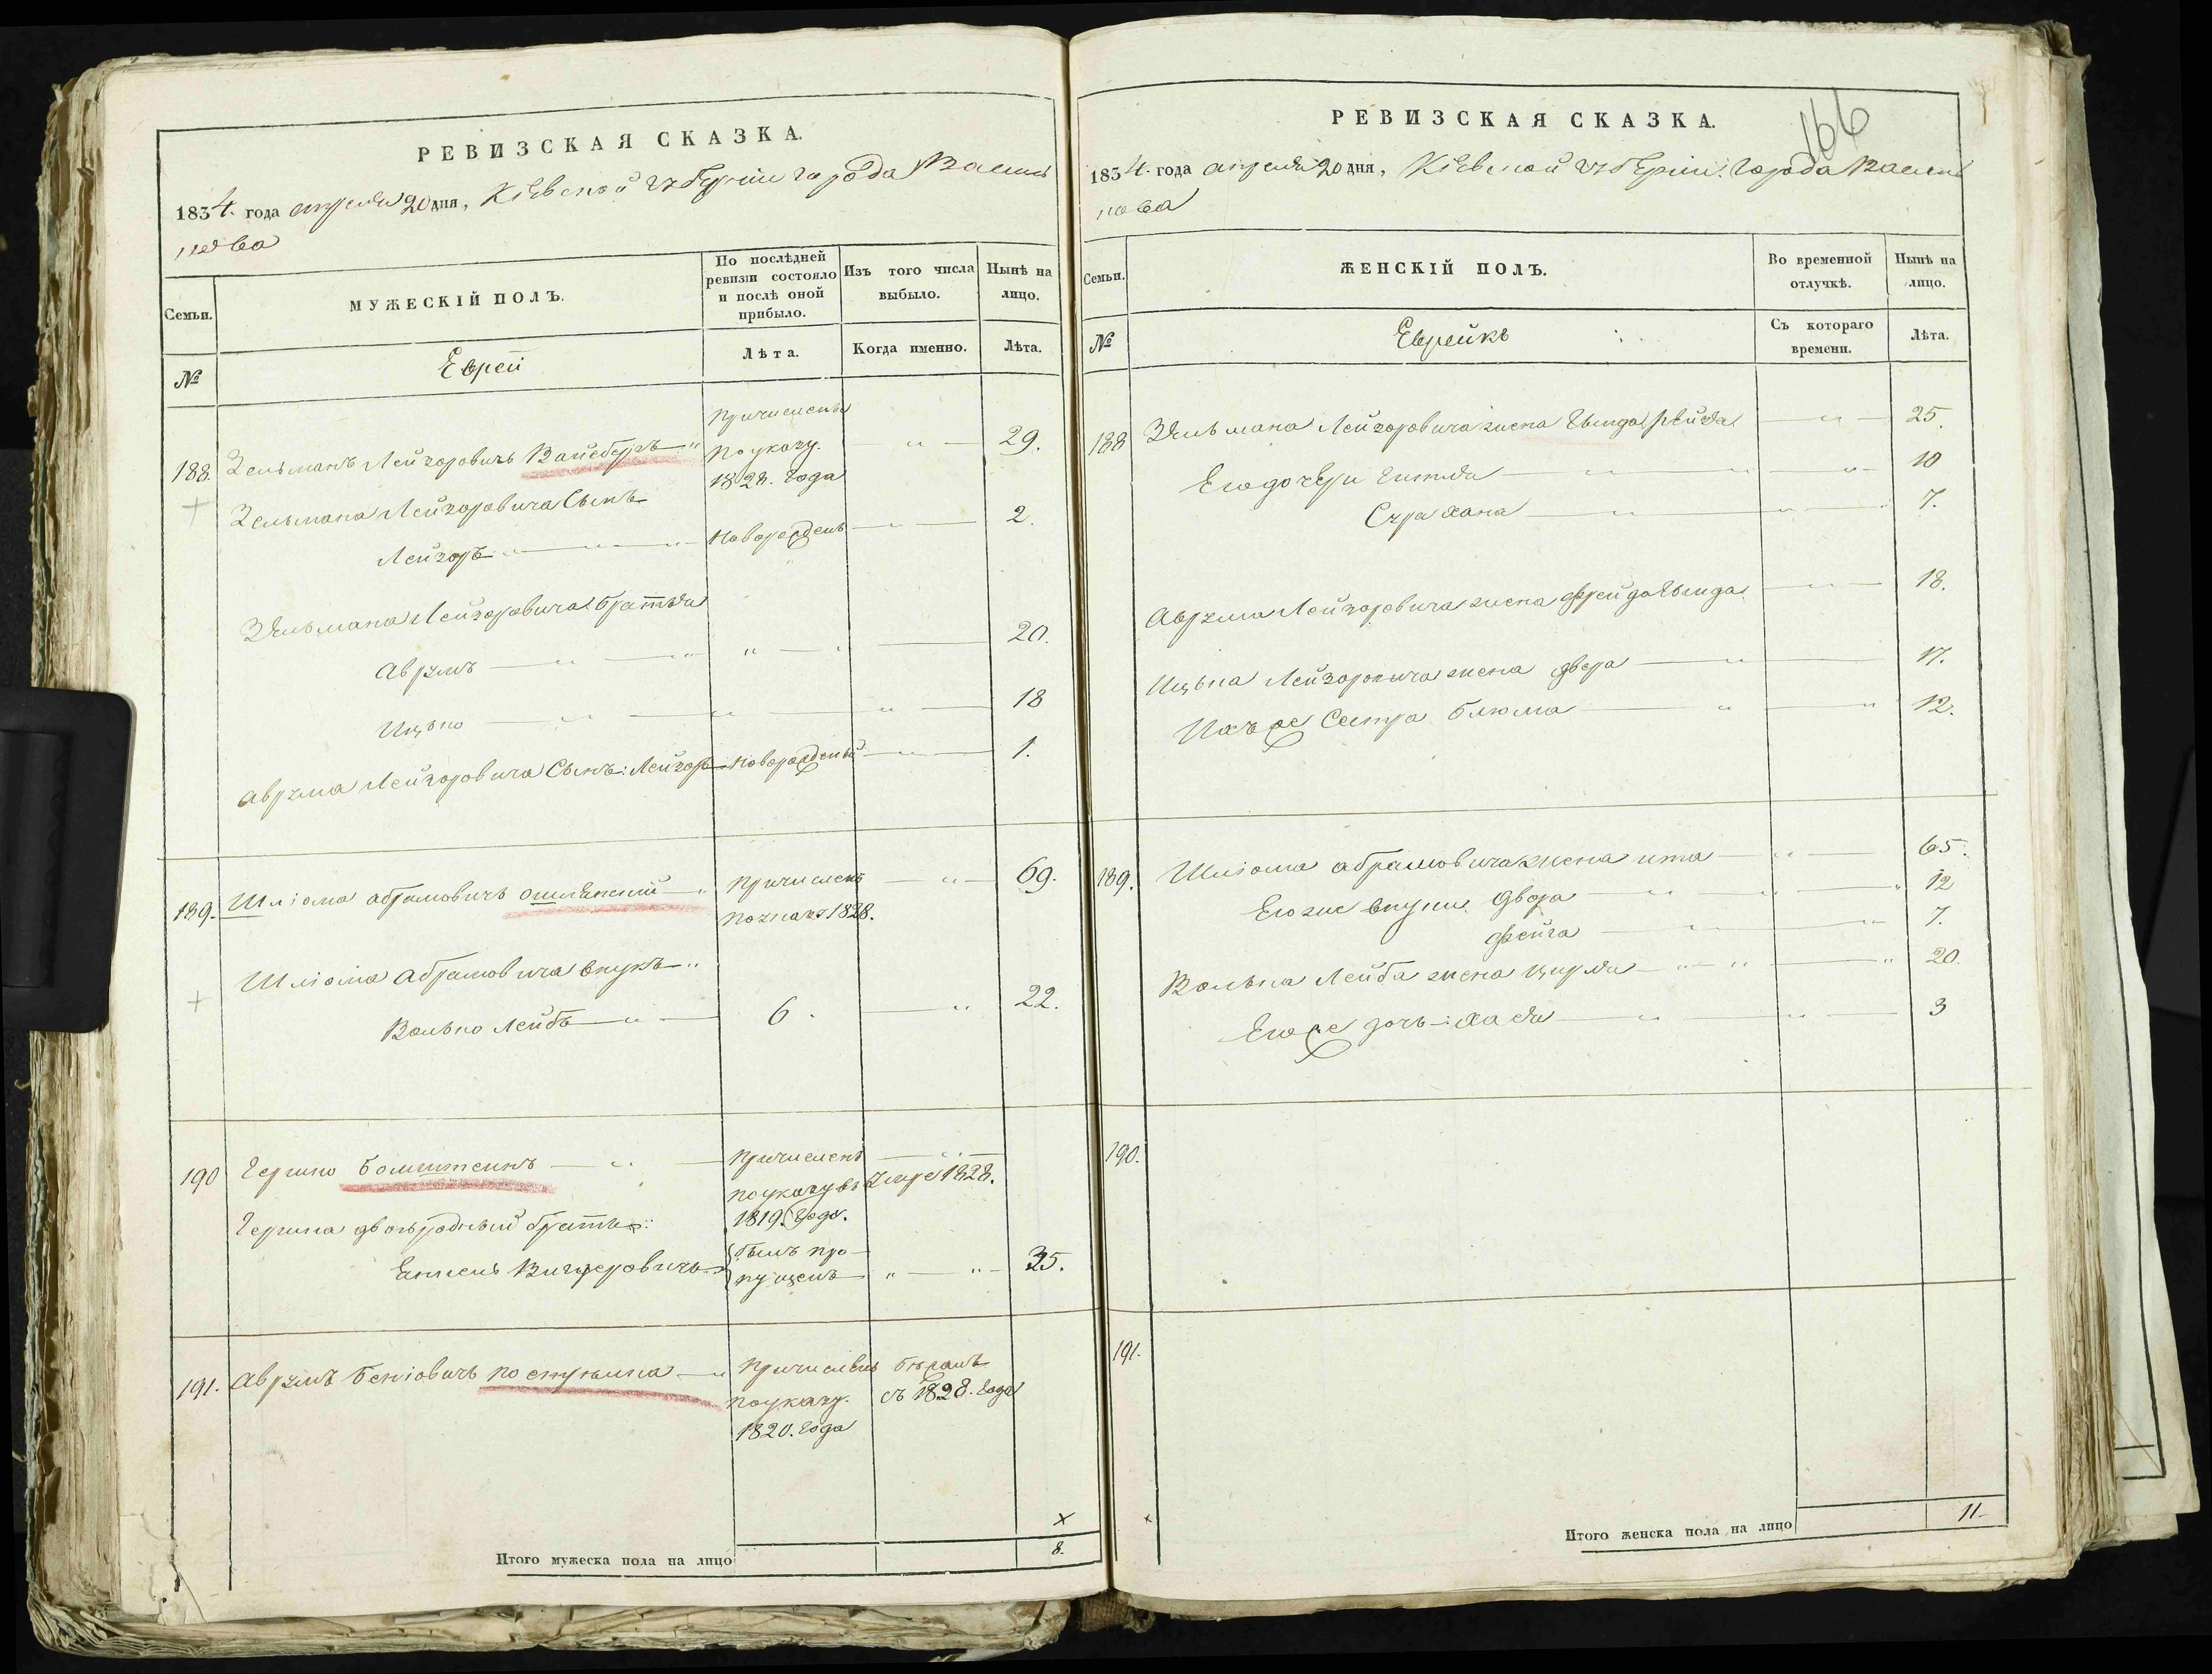 РЕВИЗСКАЯ СКАЗКА.
1834. года апреля 20 дня, Кіевской губерніи города Василь
кова
Семьи.
МУЖЕСКІЙ ПОЛЪ.
По послѣдней ревизіи состояло и послѣ оной прибыло.
Изъ того числа выбыло.
Нынѣ на лицо.
№
Еврей
Лѣта.
Когда именно.
Лѣта.
188. Зельманъ Лейзоровичь Вайсбергъ причисленъ поуказу. 1828. года 29.
Зельмана Лейзоровича Сынъ
Лейзоръ новорожденъ 2.
Зельмана Лейзоровича братья
Аврумъ 20.
Ицько 18
Аврума Лейзоровича Сынъ: Лейзоръ новорожденый 1.
189. Шліома абрамовичь причисленъ 1828. 69.
Шліома абрамовича внукъ
Волько Лейбъ 6. 22.
190 Гершко причисленъ поуказу въ 1819. года. умре 1828.
Гершка двоюродный братъ
былъ пропущенъ 35.
191. Аврумъ причисленъ поуказу. 1820. года бѣжалъ съ 1828. года
Итого мужеска пола на лицо 8.
РЕВИЗСКАЯ СКАЗКА.
166
1834. года апреля 20 дня, Кіевской губерніи. города Василь
кова
Семьи.
ЖЕНСКІЙ ПОЛЪ.
Во временной отлучкѣ.
Нынѣ на лицо.
№
Еврейкъ
Съ котораго времени.
Лѣта.
188 Зельмана Лейзоровича жена Гинда Рейзя 25.
Его дочери Гитля 10
Сура Хана 7.
Аврума Лейзоровича жена Фрейда Гинда 18.
Ицька Лейзоровича жена Двера 17.
Ихъ же Сестра Блюма 12.
189. Шліома абрамовича жена ита 65.
Его же внуки Двора 12
Фейга 7.
Волька Лейба жена Цирля 20.
Его же дочь: Хая 3
190.
191.
Итого женска пола на лицо 11.